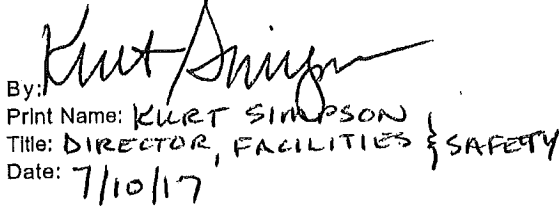 By: Kurt Simpson
Print Name: KURT SIMPSON
Title: DIRECTOR, FACILITIES & SAFETY
Date: 7/10/17